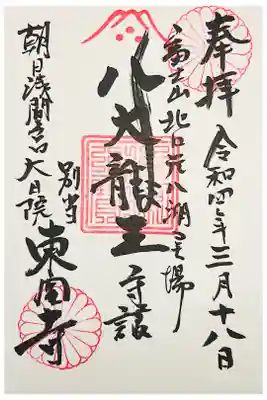 奉拝
令和四年三月十八日
富士山北口元八湖霊場
八大龍王
守護
別当
東圓寺
朝日浅間宮大日院